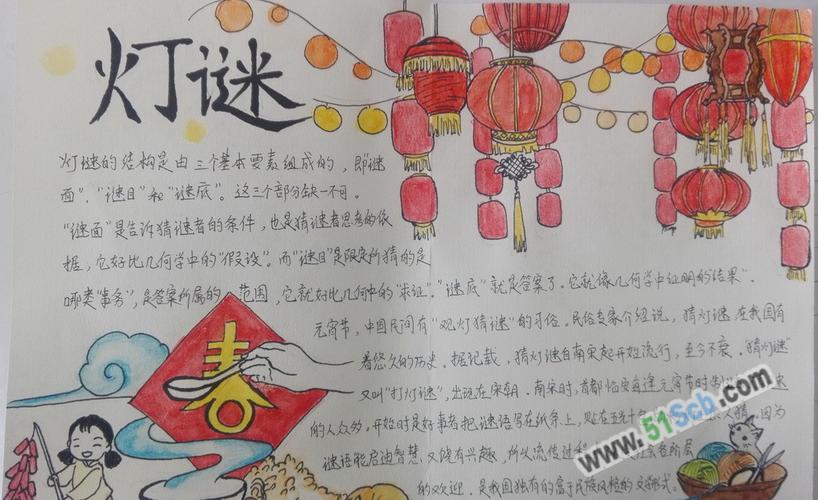 灯谜
灯谜的结构是由三个基本要素组成的，即"谜
面"、"谜目"和"谜底"。这三个部分缺一不可。
"谜面"是告诉猜谜者的条件，也是猜谜者思考的依
据，它好比几何学中的"假设"。而"谜目"是限定所猜的是
哪类"事务"，是答案所属的范围，它就好比几何中的"求证"。"谜底"就是答案了。它就像几何学中证明的结果"。
元宵节，中国民间有"观灯猜谜"的习俗。民俗专家介绍说，猜灯谜在我国有
着悠久的历史。据记载，猜灯谜自南宋起开始流行，至今不衰。猜灯谜"
又叫"打灯谜"，出现在宋朝。南宋时，首都临安每逢元宵节时制 谜
的人众多，开始时是好事者把谜语写在纸条上，贴在五 人猜，因为
谜语能启迪智慧又饶有兴趣，所以流传过 会各阶层
的欢迎，是我国独有的富于民族风格的文 形式。
春
www.51Scb.com